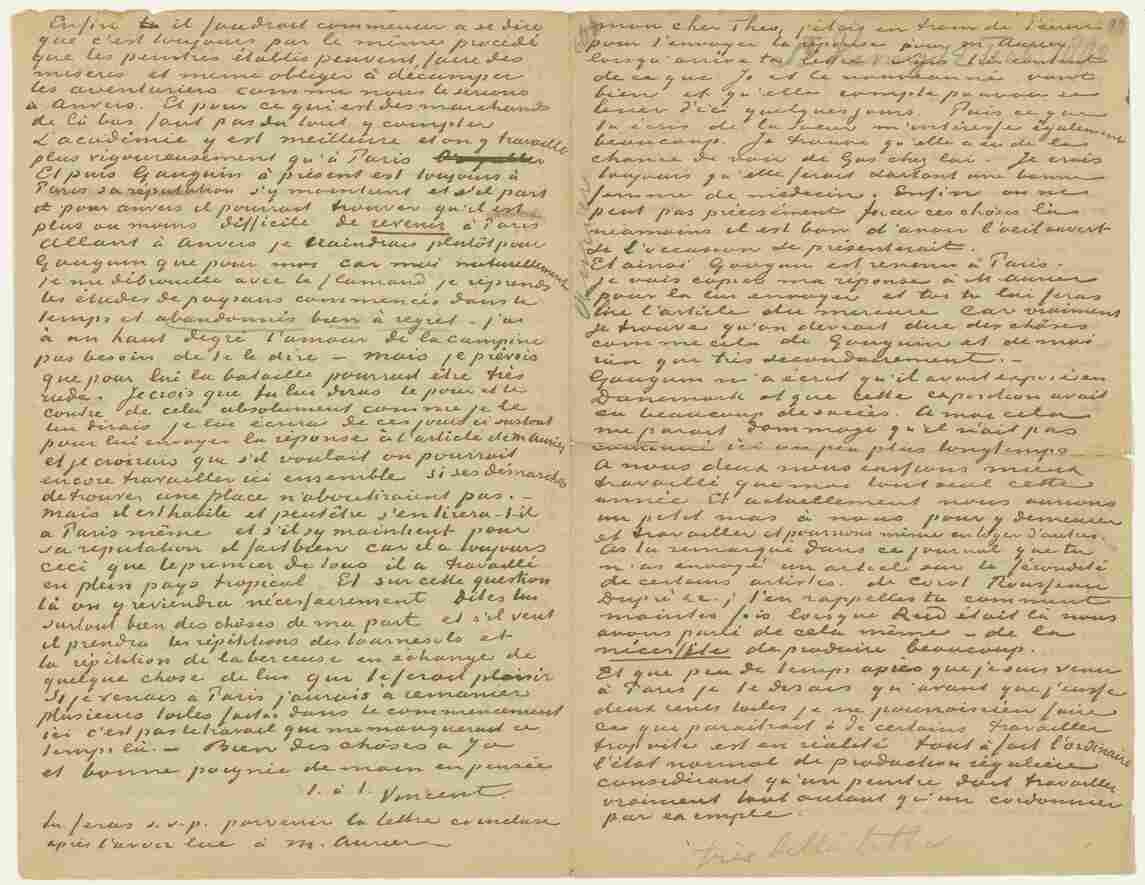 Enfin il faudrait commencer a se dire
que c'est toujours par le même procédé
que les peintres établis peuvent faire des
misères et meme obliger à décamper
les aventuriers comme nous le serions
à Anvers. Et pour ce qui est des marchands
de là bas faut pas du tout y compter
L'academie y est meilleure et on y travaille
plus vigoureusement qu'à Paris
Et puis Gauguin à présent est toujours à
Paris sa reputation s'y maintient et s'il part
pour anvers il pourrait trouver qu'il est
plus ou moins difficile de revenir à Paris
Allant à Anvers je craindrais plutôt pour
Gauguin que pour moi car moi naturellement
je me debrouille avec le flamand je reprends
les études de paysans commencés dans le
temps et abandonnés bien à regret – j'ai
à un haut degré l'amour de la campine
pas besoin de te le dire – mais je prévois
que pour lui la bataille pourrait être très
rude. Je crois que tu lui diras le pour et le
contre de cela absolument comme je le
lui dirais je lui écrirai de ces jours ci surtout
pour lui envoyer la réponse à l'article de M Aurier
et je croirais que s'il voulait on pourrait
encore travailler ici ensemble si ses démarches
de trouver une place n'aboutiraient pas. –
Mais il est habile et peutêtre s'en tirera-t-il
a Paris même et s'il s'y maintient pour
sa reputation il fait bien car il a toujours
ceci que le premier de tous il a travaillé
en plein pays tropical. Et sur cette question
là on y reviendra nécessairement Dites lui
surtout bien des chôses de ma part et s'il veut
il prendra les répétitions des tournesols et
la répétition de la berceuse en échange de
quelque chose de lui qui te ferait plaisir
Si je venais à Paris j'aurais a remanier
plusieurs toiles faites dans le commencement
ici c'est pas le travail qui me manquerait ce
temps là. – Bien des chôses a Jo
et bonne poignée de main en pensée
t. à t. Vincent.
tu feras s.v.p. parvenir la lettre ci incluse
après l'avoir lue à M. Aurier
mon cher Theo, j'étais en train de t'écrire
pour t'envoyer la réponse pour M. Aurier
lorsqu'arriva ta lettre. Suis très content
de ce que Jo et le nouveau né vont
bien et qu'elle compte pouvoir se
lever d'ici quelques jours. Puis ce que
tu écris de la soeur m'intéresse également
beaucoup. Je trouve qu'elle a eu de la
chance de voir de Gas chez lui. Je crois
toujours qu'elle ferait surtout une bonne
femme de médecin Enfin on ne
peut pas précisément forcer ces chôses là
neamoins il est bon d'avoir l'oeil ouvert
si l'occasion se présenterait.
Et ainsi Gauguin est revenu à Paris.
Je vais copier ma réponse à M Aurier
pour la lui envoyer et toi tu lui feras
lire l'article du mercure car vraiment
je trouve qu'on devrait dire des chôses
comme cela de Gauguin et de moi
rien que très secondairement. –
Gauguin m'a écrit qu'il avait exposé en
Danemark et que cette exposition avait
eu beaucoup de succès. A moi cela
me parait dommage qu'il n'ait pas
continué ici un peu plus longtemps
A nous deux nous eussions mieux
travaillé que moi tout seul cette
année Et actuellement nous aurions
un petit mas à nous pour y demeurer
et travailler et pourrions même en loger d'autres.
As tu remarqué dans ce journal que tu
m'as envoyé un article sur la fécondité
de certains artistes. de Corot Rousseau
Dupré &c. j t'en rappelles tu comment
maintes fois lorsque Reid était là nous
avons parlé de cela même – de la
nécessité de produire beaucoup.
Et que peu de temps après que je suis venu
à Paris je te disais qu'avant que j'eusse
deux cents toiles je ne pourrais rien faire
ce que paraitrait à de certains travailler
trop vite est en réalité tout à fait l'ordinaire
l'état normal de production regulière
considérant qu'un peintre doit travailler
vraiment tout autant qu'un cordonnier
par exemple.
très belle lettre